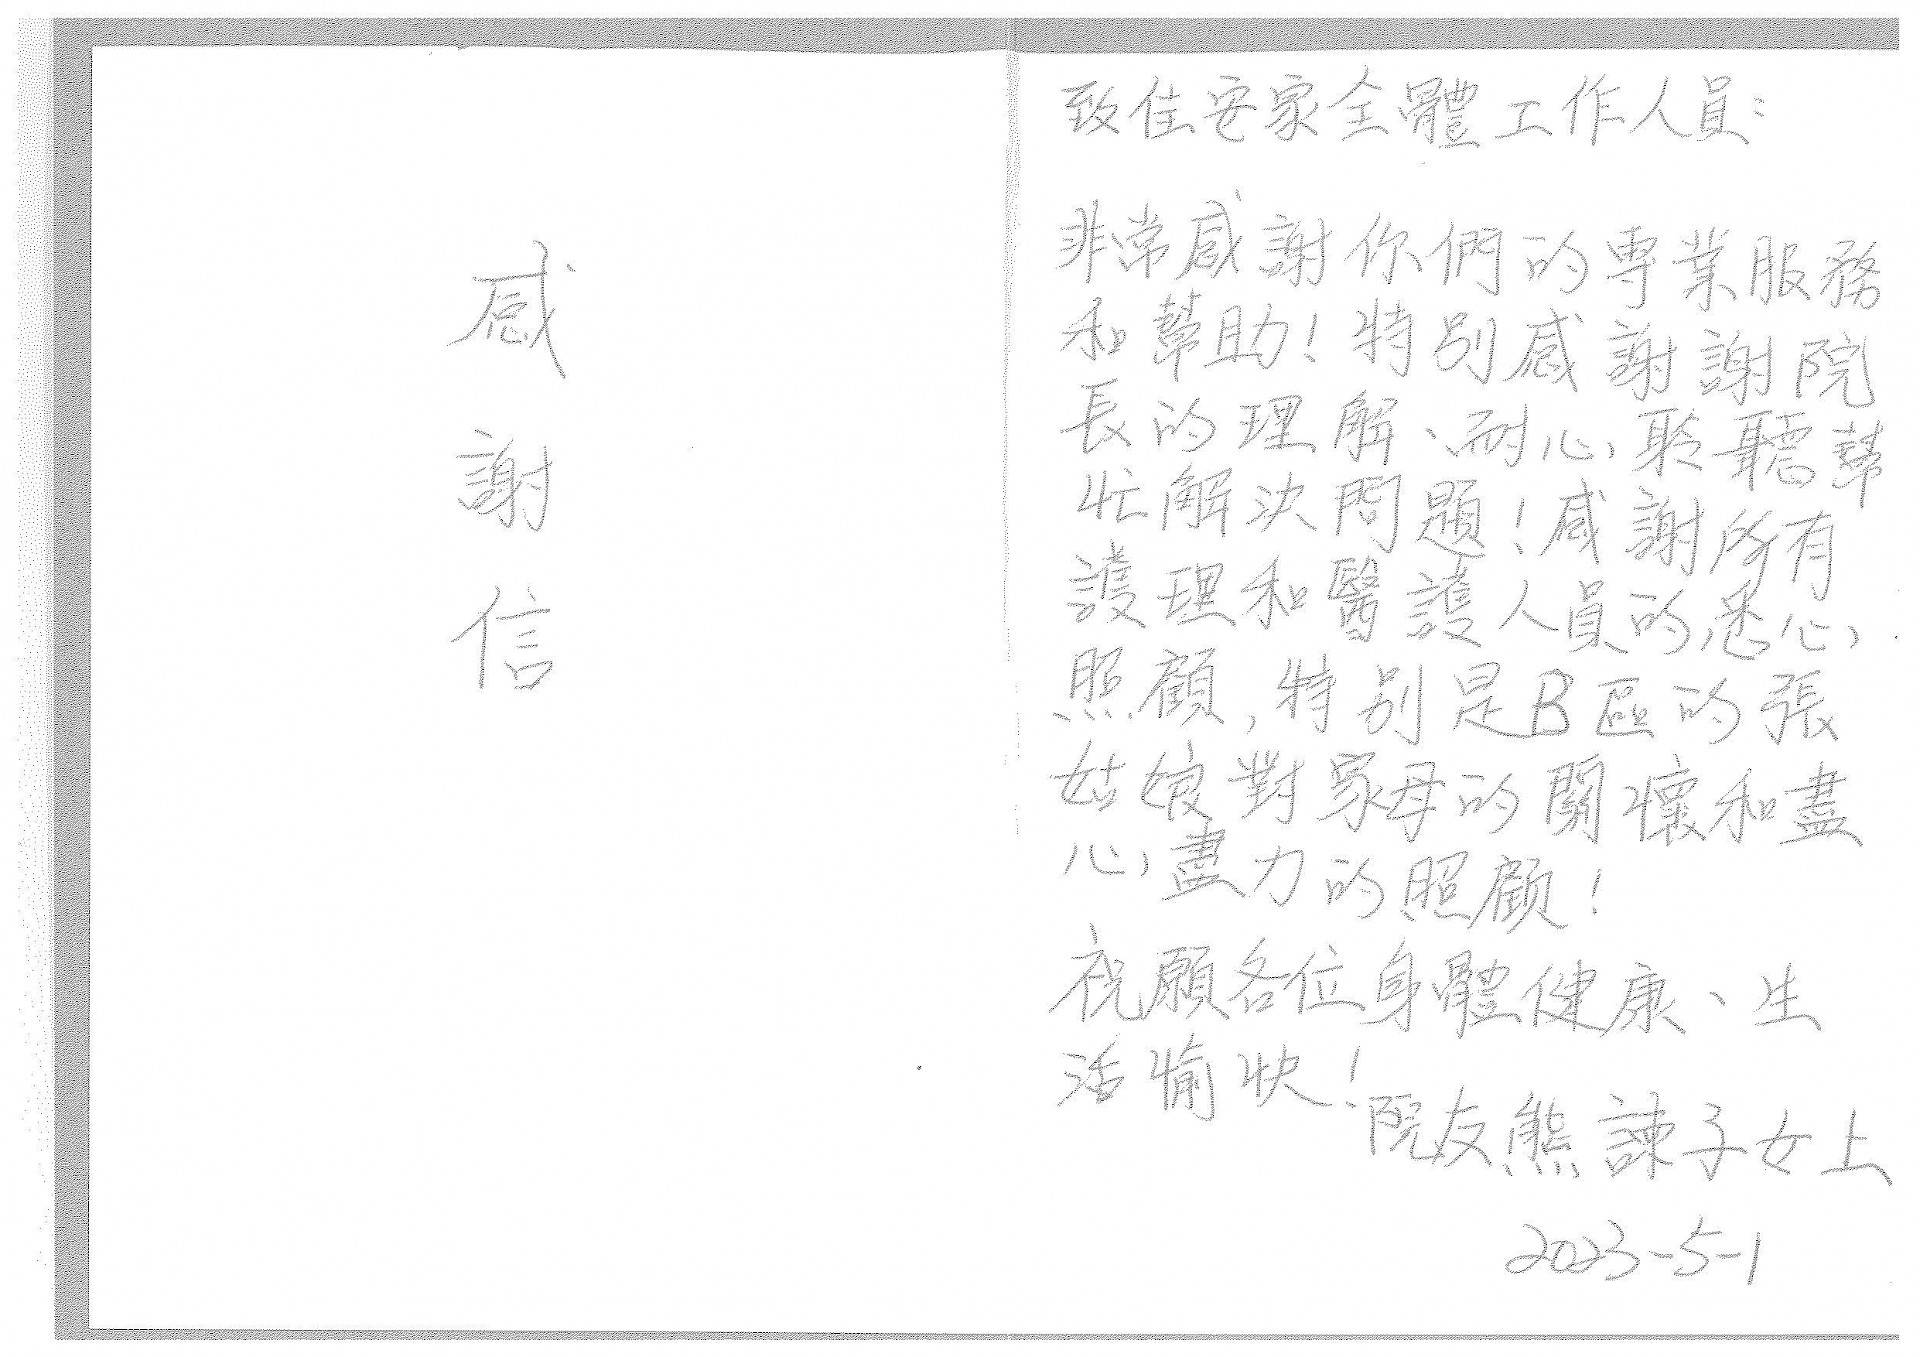 感
謝
信
致佳安家全體工作人員：
非常感謝你們的專業服務
和幫助！特別感謝謝院
長的理解、耐心聆聽幫
忙解決問題！感謝所有
護理和醫護人員的悉心
照顧，特別是B區的張
姑娘對家母的關懷和盡
心盡力的照顧！
祝願各位身體健康、生
活愉快！
院友熊諫子女上
2023-5-1